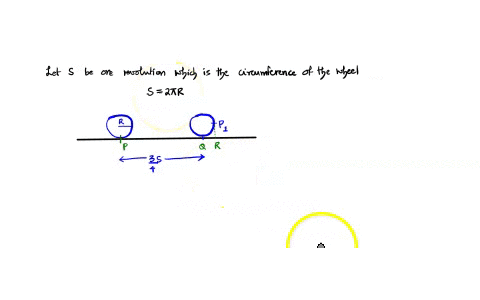 Let S be one revolution which is the circumference of the wheel
S = 2πR
R
P₁
P Q R
3S
4